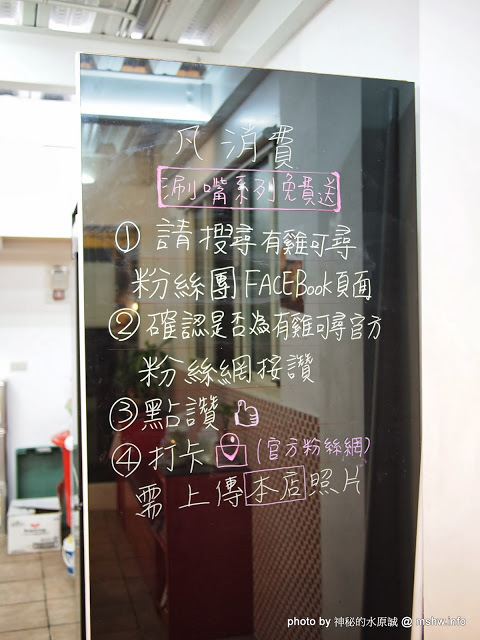 凡消費
涮嘴系列免費送
① 請搜尋有雞可尋
粉絲團FACEBook頁面
② 確認是否為有雞可尋官方
粉絲網按讚
③ 點讚
④ 打卡 (官方粉絲網)
需上傳本店照片
photo by 神秘的水原誠 @ mshw.info